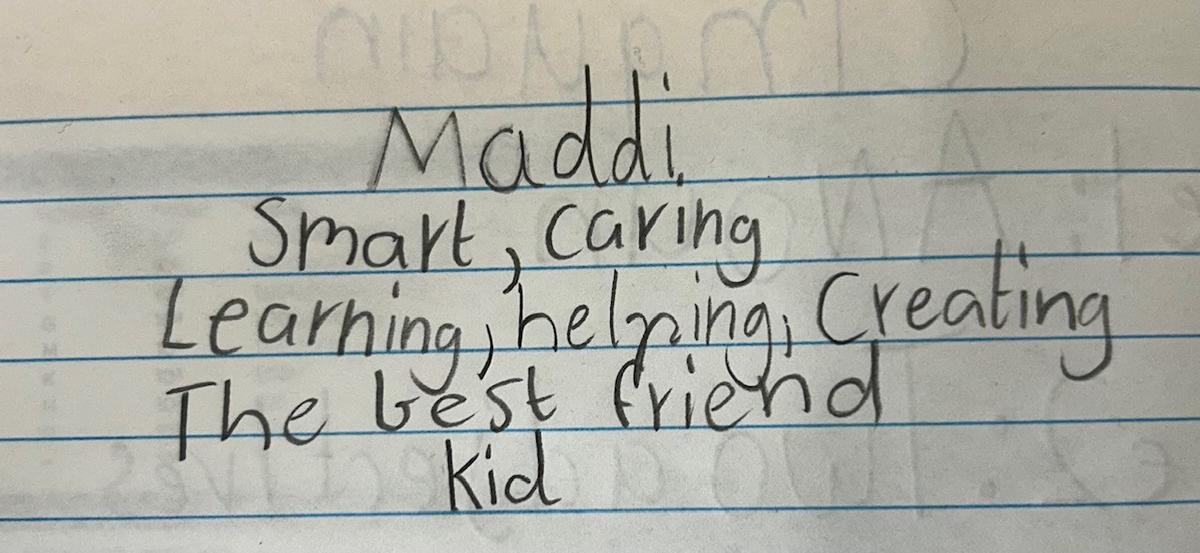 Maddi.
Smart, caring
Learning, helping, Creating
The best friend
kid